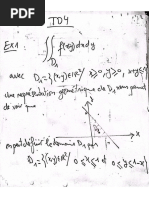 TD4
Ex1: ∬ f(x,y) dx dy
D₁
avec D₁ = {(x,y)∈ℝ² / x≥0, y≥0, x+y≤
Une représentation géométrique de D₁ nous permet
de voir que
on peut définir le domaine D₁ par
D₁ = {(x,y)∈ℝ² / 0≤x≤1 et 0≤y≤1-x}